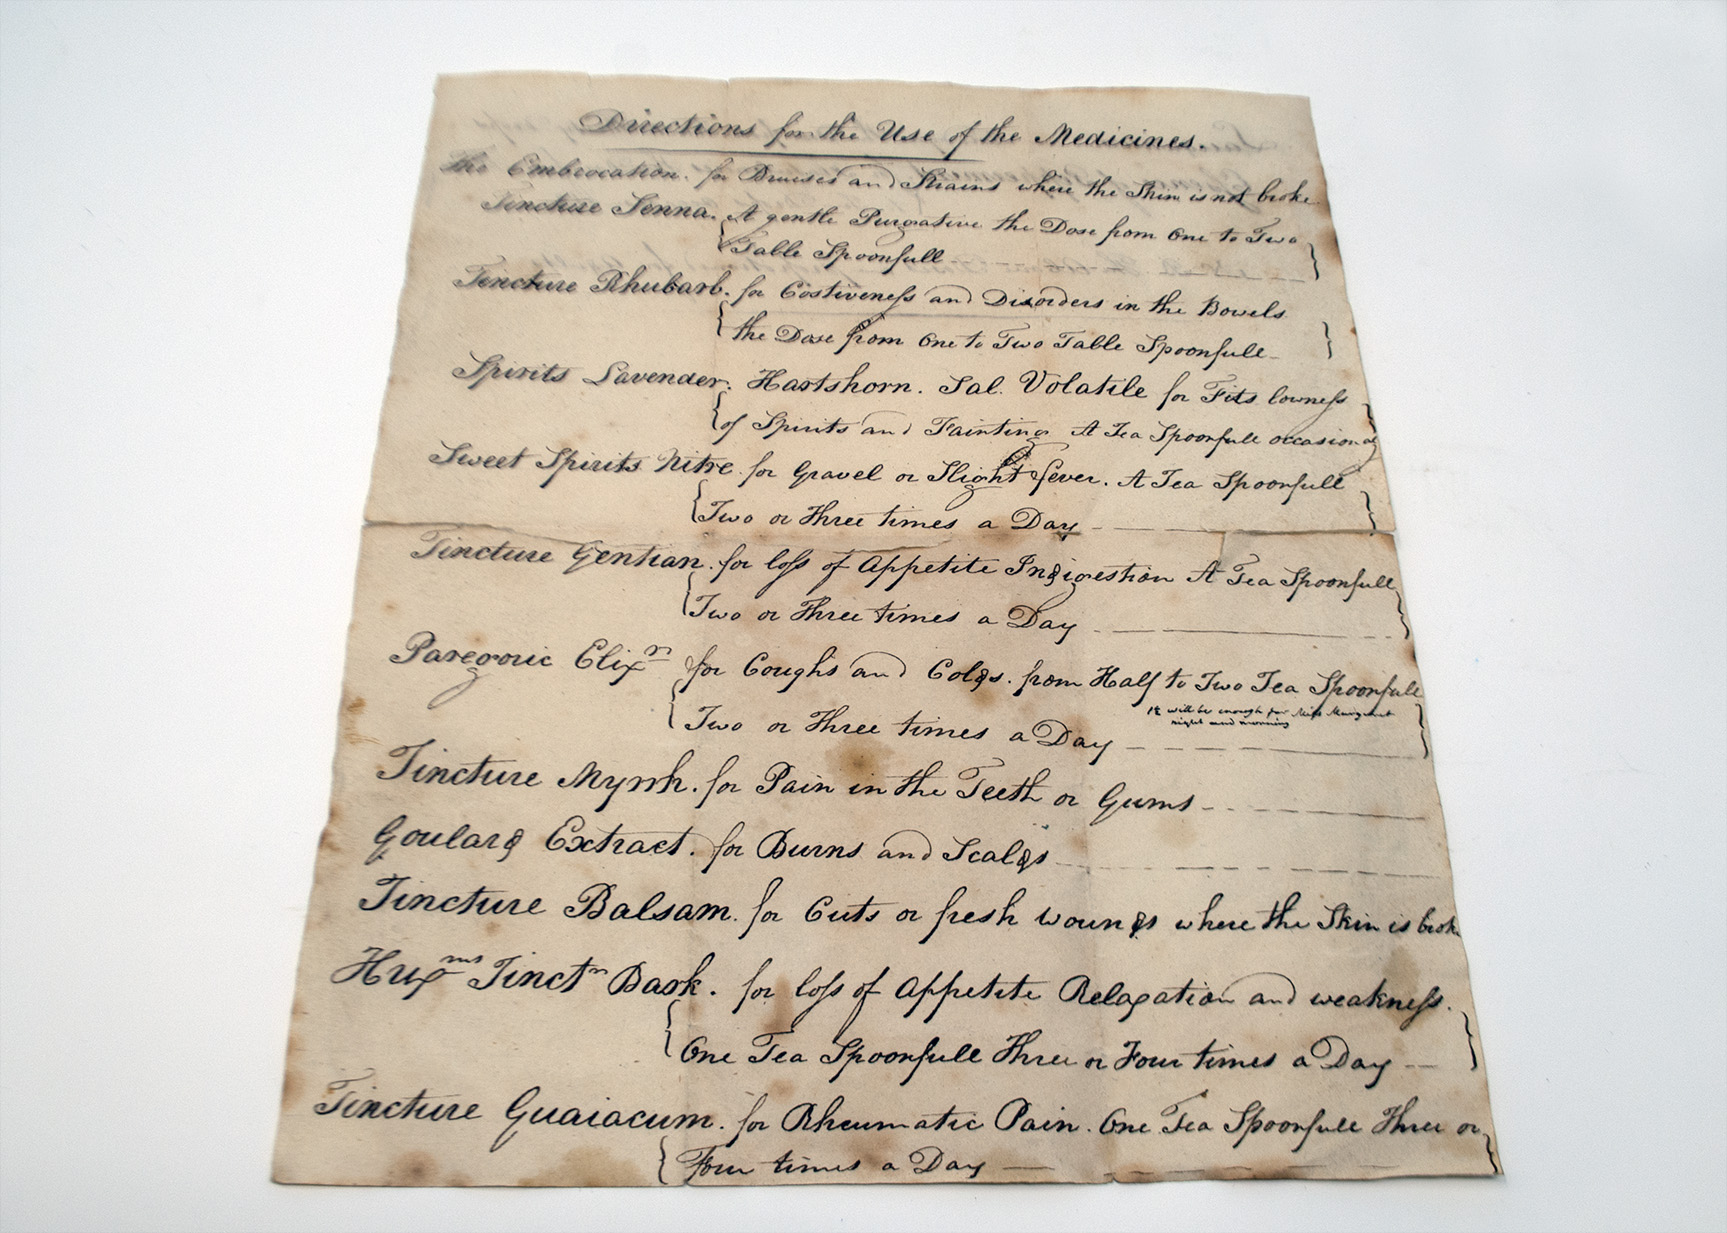 Directions for the Use of the Medicines.
The Embrocation. for Bruises and Strains where the Skin is not broke
Tincture Senna. A gentle Purgative the Dose from One to Two
Table Spoonfull
Tincture Rhubarb. for Costiveness and Disorders in the Bowels
the Dose from One to Two Table Spoonfull
Spirits Lavender. Hartshorn. Sal. Volatile for Fits lowness
of Spirits and Fainting A Tea Spoonfull occasionaly
Sweet Spirits Nitre for Gravel or Slight fever. A Tea Spoonfull
Two or Three times a Day
Tincture Gentian. for loss of Appetite Indigestion A Tea Spoonfull
Two or Three times a Day
Paregoric Elixr for Coughs and Colds. from Half to Two Tea Spoonfull
It will be enough for Miss Margaret
night and morning
Two or Three times a Day
Tincture Myrrh. for Pain in the Teeth or Gums
Goulard Extract. for Burns and Scalds
Tincture Balsam. for Cuts or fresh Wounds where the Skin is broke
Huxms Tinctr Bark. for loss of Appetite Relaxation and weakness.
One Tea Spoonfull Three or Four times a Day
Tincture Guaiacum. for Rheumatic Pain. One Tea Spoonfull Three or
Four times a Day